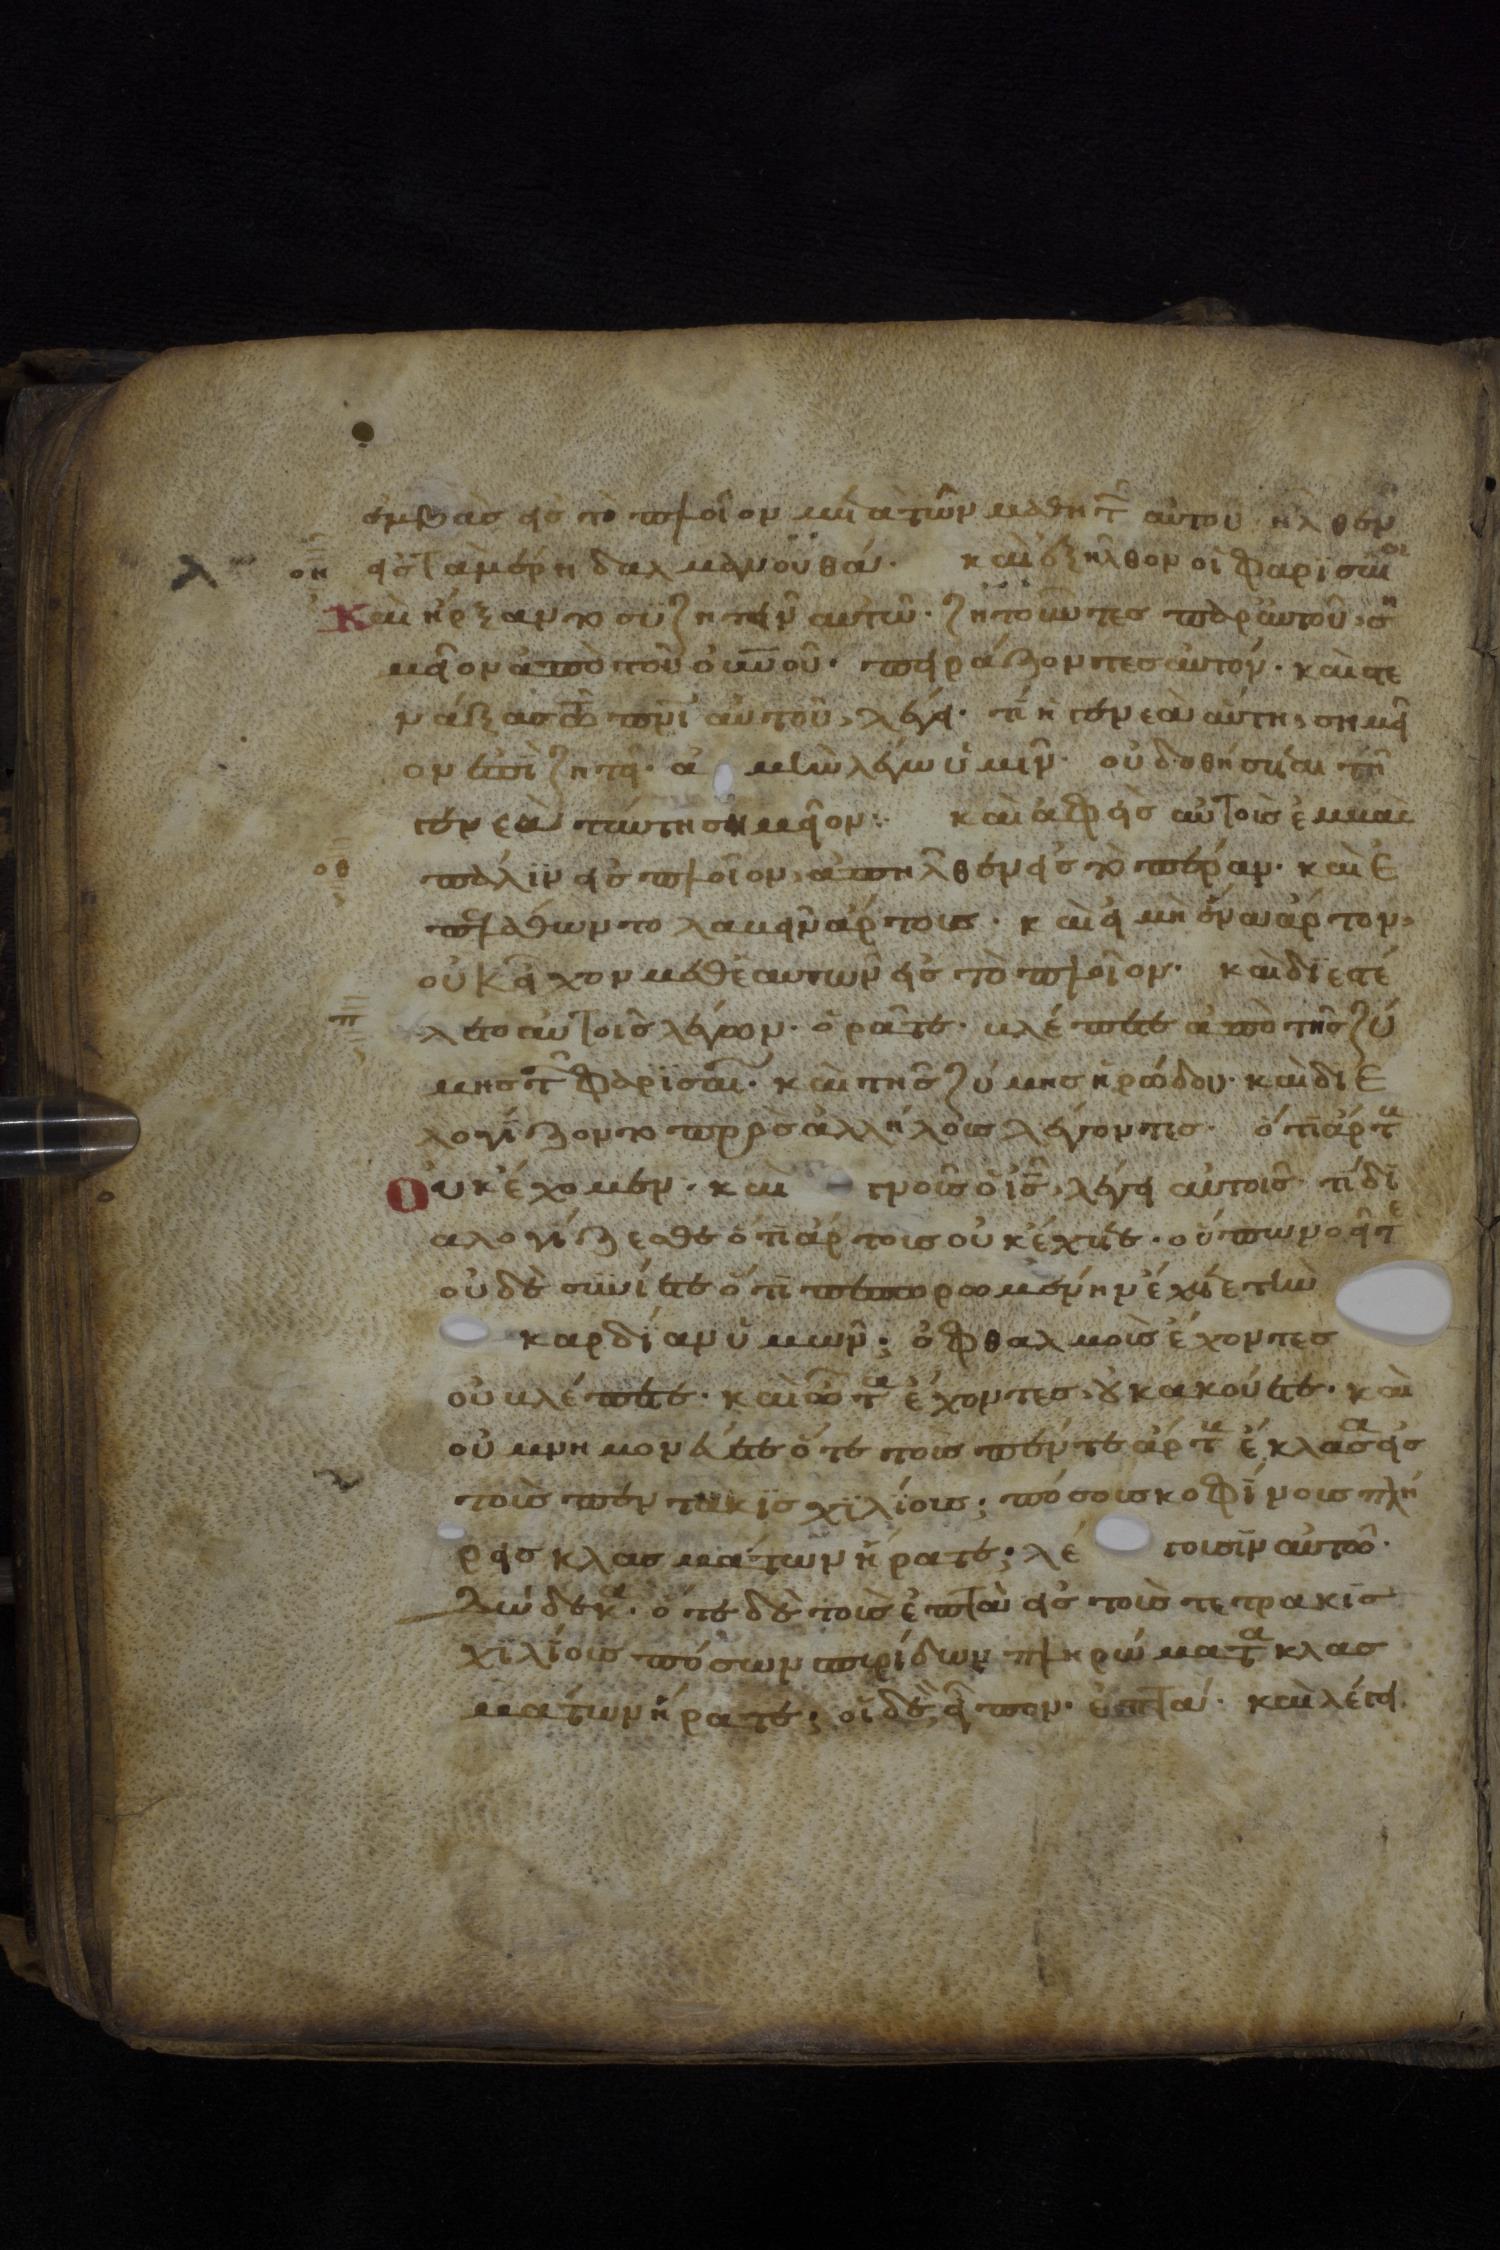 ἐμβὰς εἰς τὸ πλοῖον μετὰ τῶν μαθητ αὐτοῦ ἦλθεν
οη εἰς τὰ μέρη δαλμανουθά. καὶ ἐξῆλθον οἱ φαρισαῖοι
Καὶ ἤρξαντο συζητεῖν αὐτῶ. ζητοῦντες παρ αὐτοῦ ση
μεῖον ἀπὸ τοῦ οὐνοῦ. πειράζοντες αὐτόν. καὶ στε
νάξας τῶ πνι αὐτοῦ, λέγει. τί ἡ γενεὰ αὕτη, σημεῖ
ον ἐπιζητεῖ. ἀμὴν λέγω ὑμῖν. οὐ δοθήσεται τῆ
γενεᾶ ταύτη σημεῖον. καὶ ἀφεὶς αὐτοὺς ἐμβὰς
οθ πάλιν εἰς πλοῖον, ἀπῆλθεν εἰς τὸ πέραν. καὶ ἐ
πελάθοντο λαβεῖν ἄρτους. καὶ εἰ μὴ ἕνα ἄρτον,
οὐκ εἶχον μεθ ἑαυτῶν εἰς τὸ πλοῖον. καὶ διεστέ
π λετο αὐτοῖς λέγων. ὁρᾶτε. βλέπετε ἀπὸ τῆς ζύ
μης τ φαρισαι. καὶ τῆς ζύμης ἡρώδου. καὶ διε
λογίζοντο πρὸς ἀλλήλους λέγοντες. ὅτι ἄρτ
Οὐκ ἔχομεν. καὶ γνοὺς ὁ ις, λέγει αὐτοῖς. τί δι
αλογίζεσθε ὅτι ἄρτους οὐκ ἔχετε. οὔπω νοεῖτε
οὐδὲ συνίετε ὅτι πεπωρωμένην ἔχετε τὴν
καρδίαν ὑμῶν; ὀφθαλμοὺς ἔχοντες
οὐ βλέπετε. καὶ ὦτα ἔχοντες, οὐκ ἀκούετε. καὶ
οὐ μνημονεύετε ὅτε τοὺς πέντε ἄρτ ἔκλασα εἰς
τοὺς πεντακισχιλίους; πόσους κοφίνους πλή
ρεις κλασμάτων ἤρατε; λέγουσιν αὐτῶ.
Δώδεκα. ὅτε δὲ τοὺς ἑπτὰ εἰς τοὺς τετρακισ
χιλίους πόσων σπυρίδων πληρώματα κλασ
μάτων ἤρατε; οἱ δὲ εἶπον. ἑπτά. καὶ λέγει